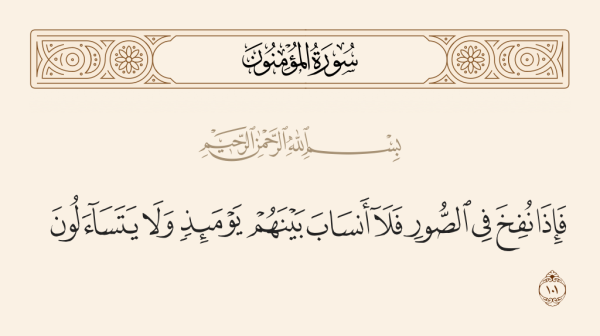 سُورَةُ المُؤْمِنُونَ
بِسْمِ اللَّهِ الرَّحْمَٰنِ الرَّحِيمِ
فَإِذَا نُفِخَ فِي ٱلصُّورِ فَلَآ أَنسَابَ بَيْنَهُمْ يَوْمَئِذٍ وَلَا يَتَسَآءَلُونَ
١٠١